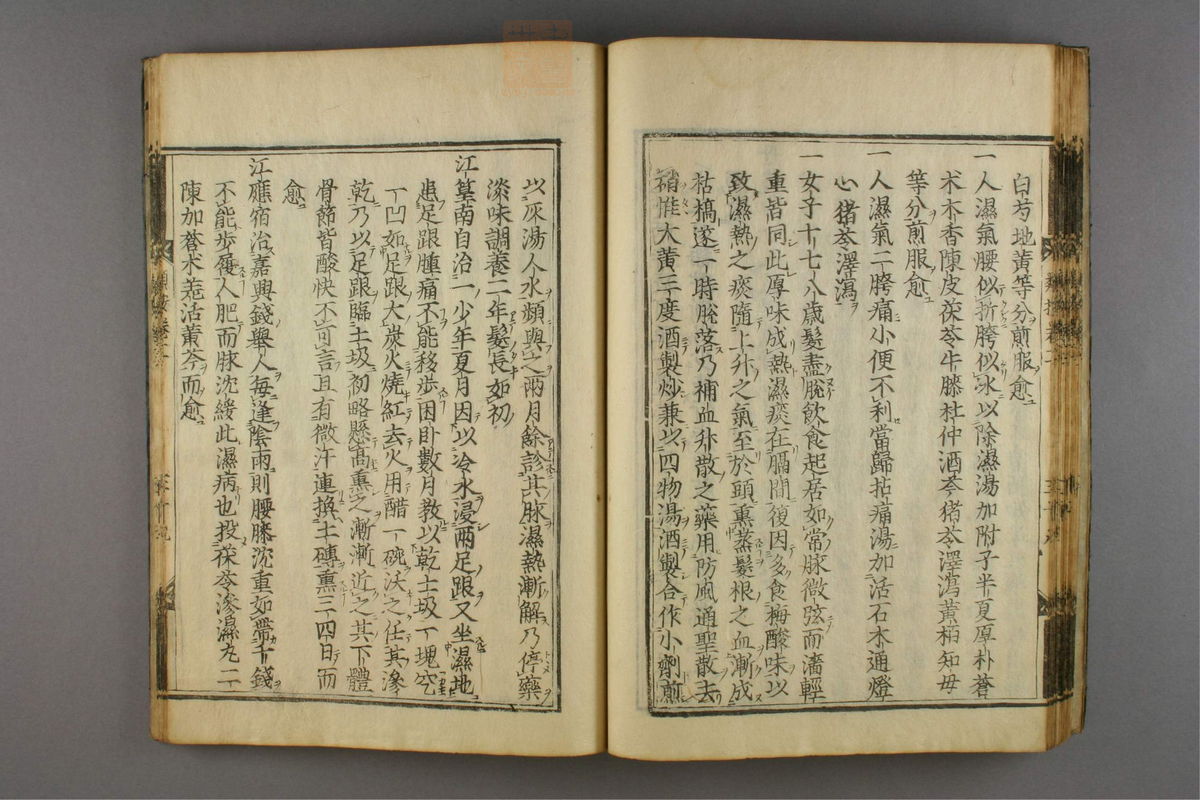 白芍地黃等分煎服愈
一人濕氣腰似折胯似冰以除濕湯加附子半夏厚朴蒼
朮木香陳皮茯苓牛膝杜仲酒芩猪苓澤瀉黃栢知母
等分煎服愈
一人濕氣二胯痛小便不利當歸拈痛湯加活石木通燈
心猪苓澤瀉
一女子十七八歲髮盡脫飲食起居如常脉微弦而濇輕
重皆同此厚味成熱濕痰在膈間復因多食梅酸味以
致濕熱之痰隨上升之氣至於頭熏蒸髮根之血漸成
枯槁遂一時脫落乃補血升散之藥用防風通聖散去
硝惟大黃三度酒製炒兼以四物湯酒製合作小劑煎
以灰湯入水頻與之兩月餘診其脉濕熱漸解乃停藥
淡味調養二年髮長如初
江篁南自治一少年夏月因以冷水浸兩足跟又坐濕地
患足跟腫痛不能移步困卧數月教以乾土圾一塊空
一凹如足跟大炭火燒紅去火用醋一碗沃之任其滲
乾乃以足跟臨土圾初略懸高熏之漸漸近之其下體
骨節皆酸快不可言且有微汗連換土磚熏三四日而
愈
江應宿治嘉興錢舉人每逢陰雨則腰膝沈重如帶千錢
不能步履人肥而脉沈緩此濕病也投茯苓滲濕丸二
陳加蒼朮羌活黃芩而愈